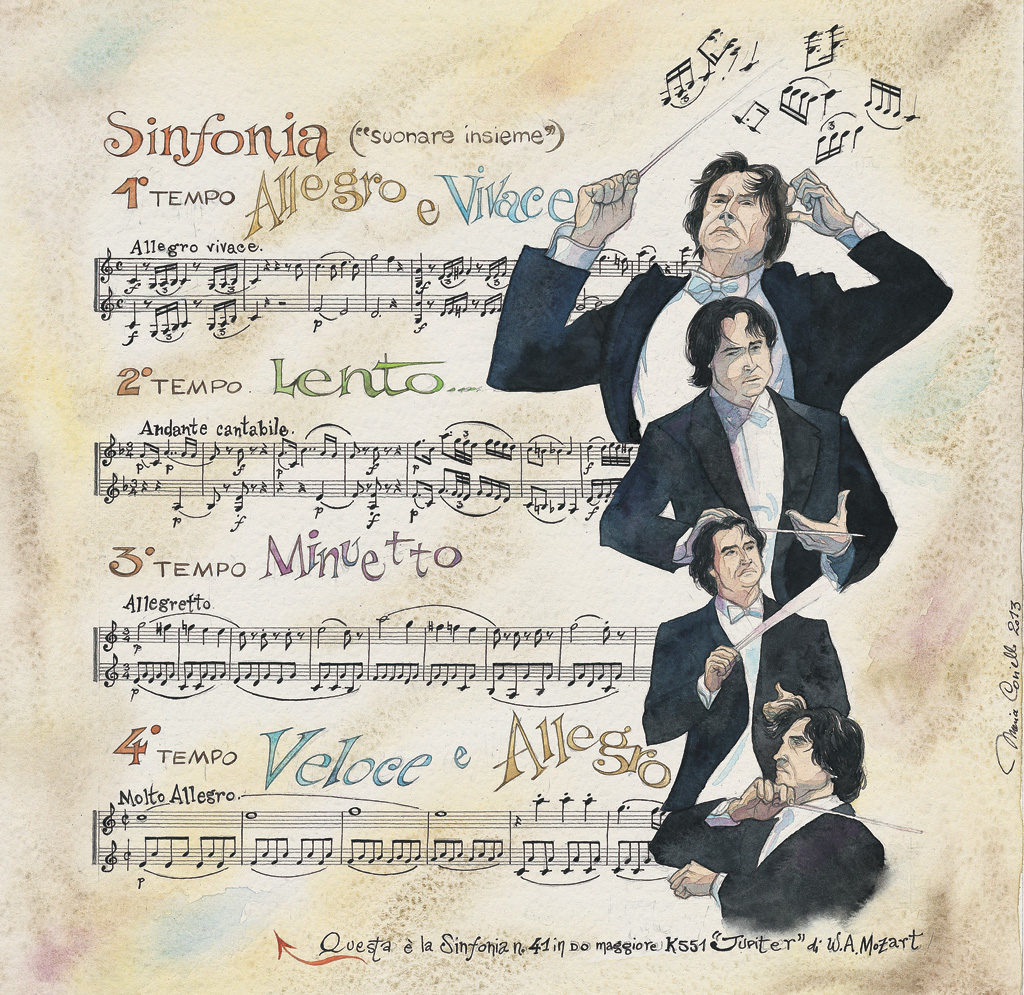 Sinfonia ("suonare insieme")
1° TEMPO Allegro e Vivace
Allegro vivace.
2° TEMPO. Lento...
Andante cantabile.
3° TEMPO Minuetto
Allegretto
4° TEMPO Veloce e Allegro
Molto Allegro.
Questa è la Sinfonia n. 41 in DO maggiore K551 "Jupiter" di W.A. Mozart
2013